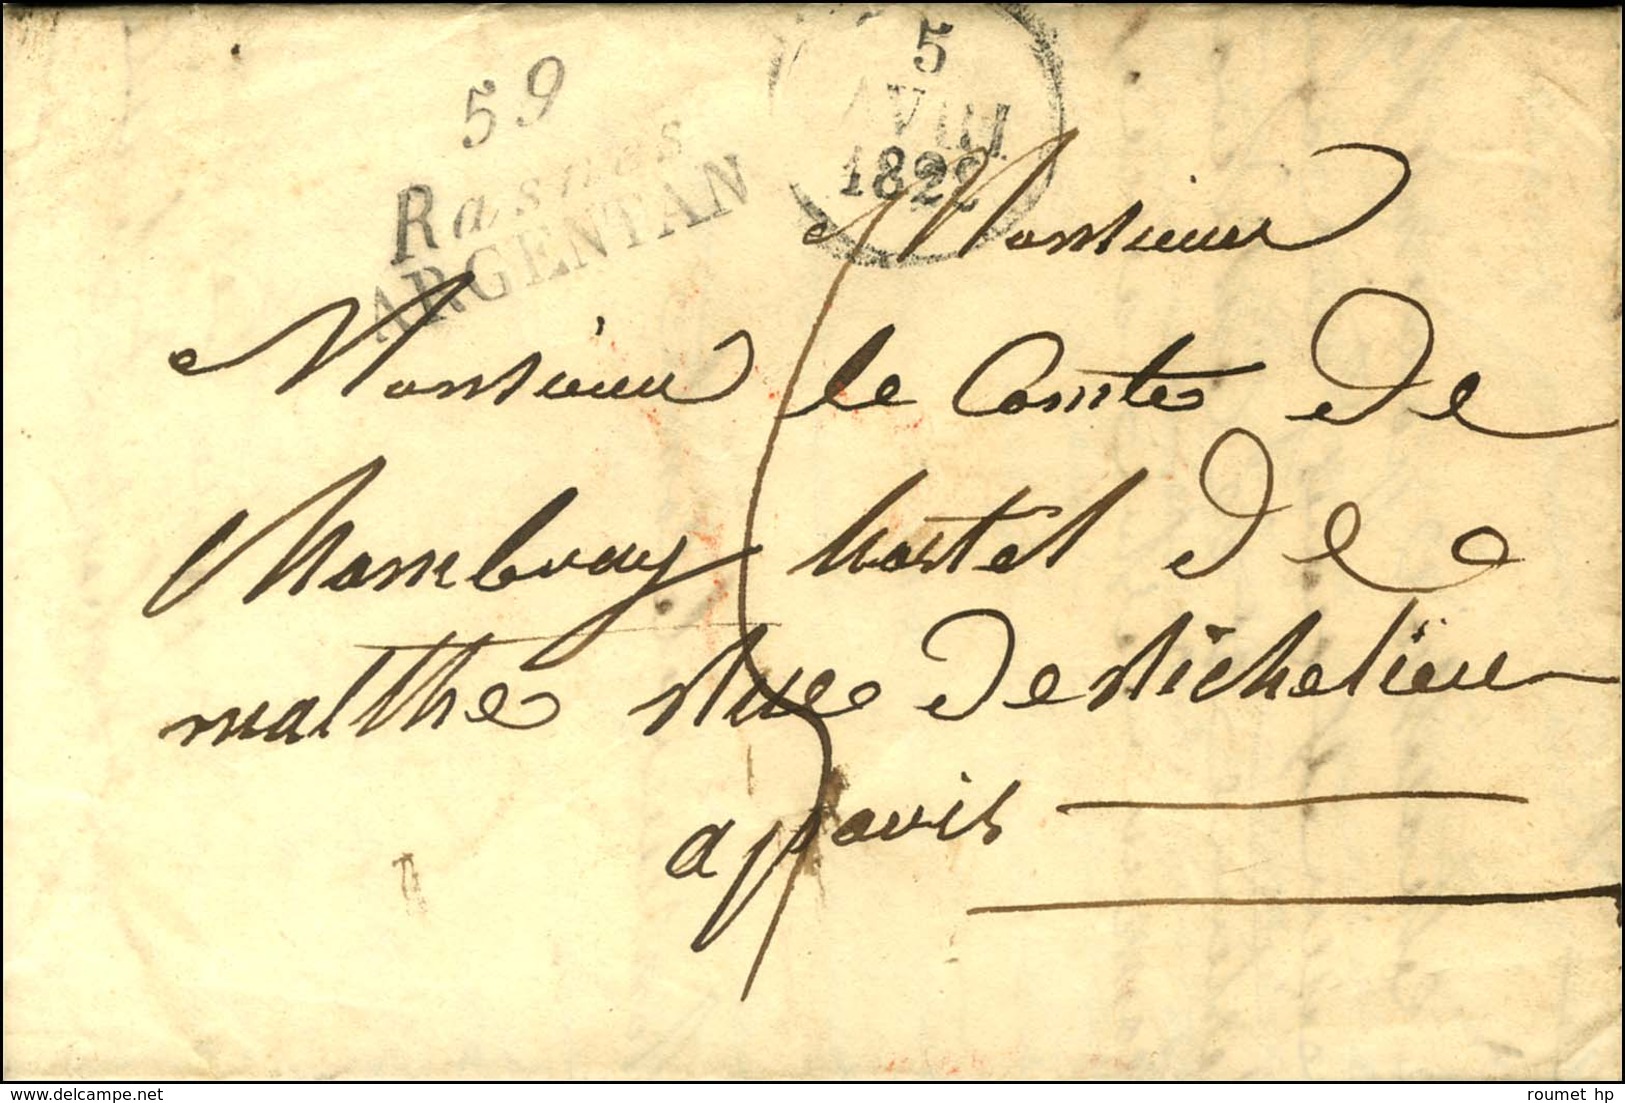 59
Rasnes
ARGENTAN
5
AVRIL
1822
Monsieur
Monsieur le Comte de
Chambray hostel de
malthe Rue de Richelieu
a paris
roumet hp